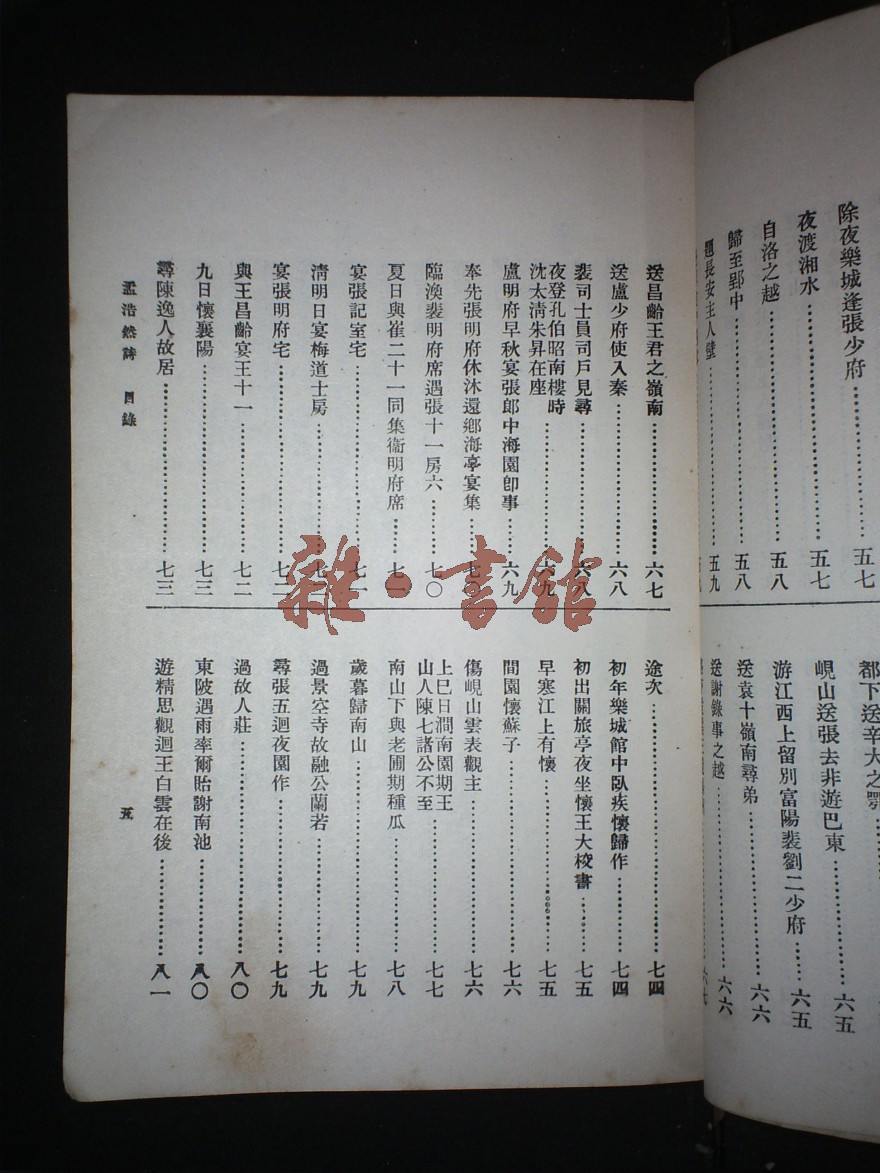 除夜樂城逢張少府…五七
夜渡湘水…五七
自洛之越…五八
歸至郢中…五八
題長安主人壁…五九
都下送辛大之鄂
峴山送張去非遊巴東…六五
游江西上留別富陽裴劉二少府…六五
送袁十嶺南尋弟…六六
送謝錄事之越…六六
送昌齡王君之嶺南…六七
送盧少府使入秦…六八
裴司士員司戶見尋…六八
夜登孔伯昭南樓時
沈太淸朱昇在座…六九
盧明府早秋宴張郎中海園卽事…六九
奉先張明府休沐還鄉海亭宴集…七〇
臨渙裴明府席遇張十一房六…七〇
夏日與崔二十一同集衞明府席…七一
宴張記室宅…七一
淸明日宴梅道士房…七二
宴張明府宅…七二
與王昌齡宴王十一…七二
九日懷襄陽…七三
尋陳逸人故居…七三
途次…七四
初年樂城館中臥疾懷歸作…七四
初出關旅亭夜坐懷王大校書…七五
早寒江上有懷…七五
間園懷蘇子…七六
傷峴山雲表觀主…七六
上巳日澗南園期王
山人陳七諸公不至…七七
南山下與老圃期種瓜…七八
歲暮歸南山…七九
過景空寺故融公蘭若…七九
尋張五迴夜園作…七九
過故人莊…八〇
東陂遇雨率爾貽謝南池…八〇
遊精思觀迴王白雲在後…八一
孟浩然詩 目錄
五
雜·書館